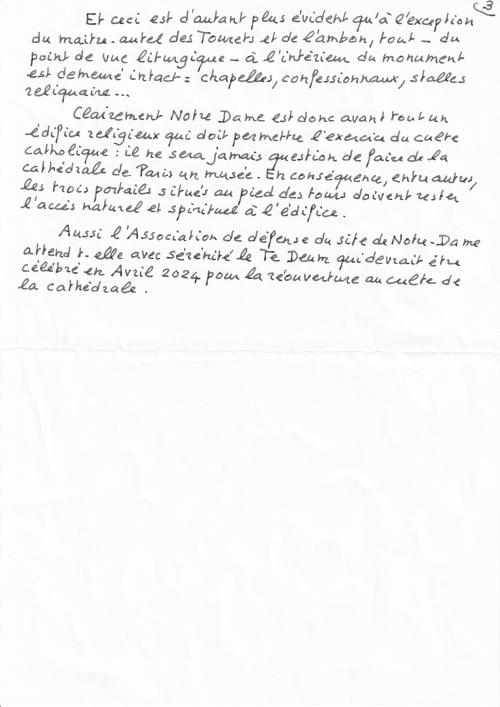 3
Et ceci est d'autant plus évident qu'à l'exception
du maître-autel des Tourets et de l'ambon, tout – du
point de vue liturgique – à l'intérieur du monument
est demeuré intact : chapelles, confessionnaux, stalles
reliquaire...
Clairement Notre Dame est donc avant tout un
édifice religieux qui doit permettre l'exercice du culte
catholique : il ne sera jamais question de faire de la
cathédrale de Paris un musée. En conséquence, entre autres,
les trois portails situés au pied des tours doivent rester
l'accès naturel et spirituel à l'édifice.
Aussi l'Association de défense du site de Notre-Dame
attend t-elle avec sérénité le Te Deum qui devrait être
célébré en Avril 2024 pour la réouverture au culte de
la cathédrale.